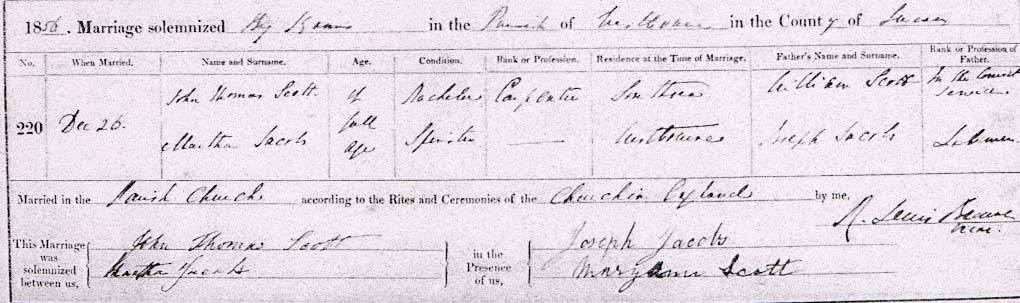 1856. Marriage solemnized By Banns in the Parish of Westbourne in the County of Sussex
No. When Married. Name and Surname. Age. Condition. Rank or Profession. Residence at the Time of Marriage. Father's Name and Surname. Rank or Profession of Father.
220 Dec 26. John Thomas Scott. of Bachelor Carpenter Southsea William Scott In the
Service
Martha Jacobs full age Spinster — Westbourne Joseph Jacobs Labourer
Married in the Parish Church according to the Rites and Ceremonies of the Church in England by me,
This Marriage was solemnized between us, John Thomas Scott
Martha Jacobs
in the Presence of us, Joseph Jacobs
Mary Anne Scott